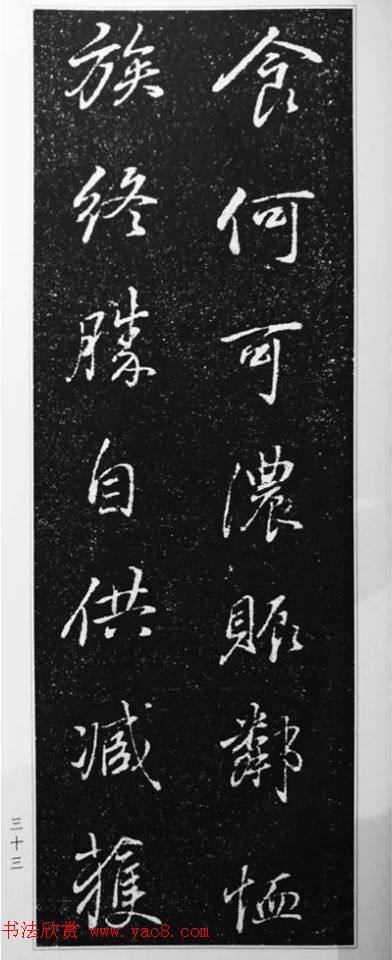 食何可濃賑鄰恤
族終勝自供減獲
三十三
书法欣赏 www.yac8.com